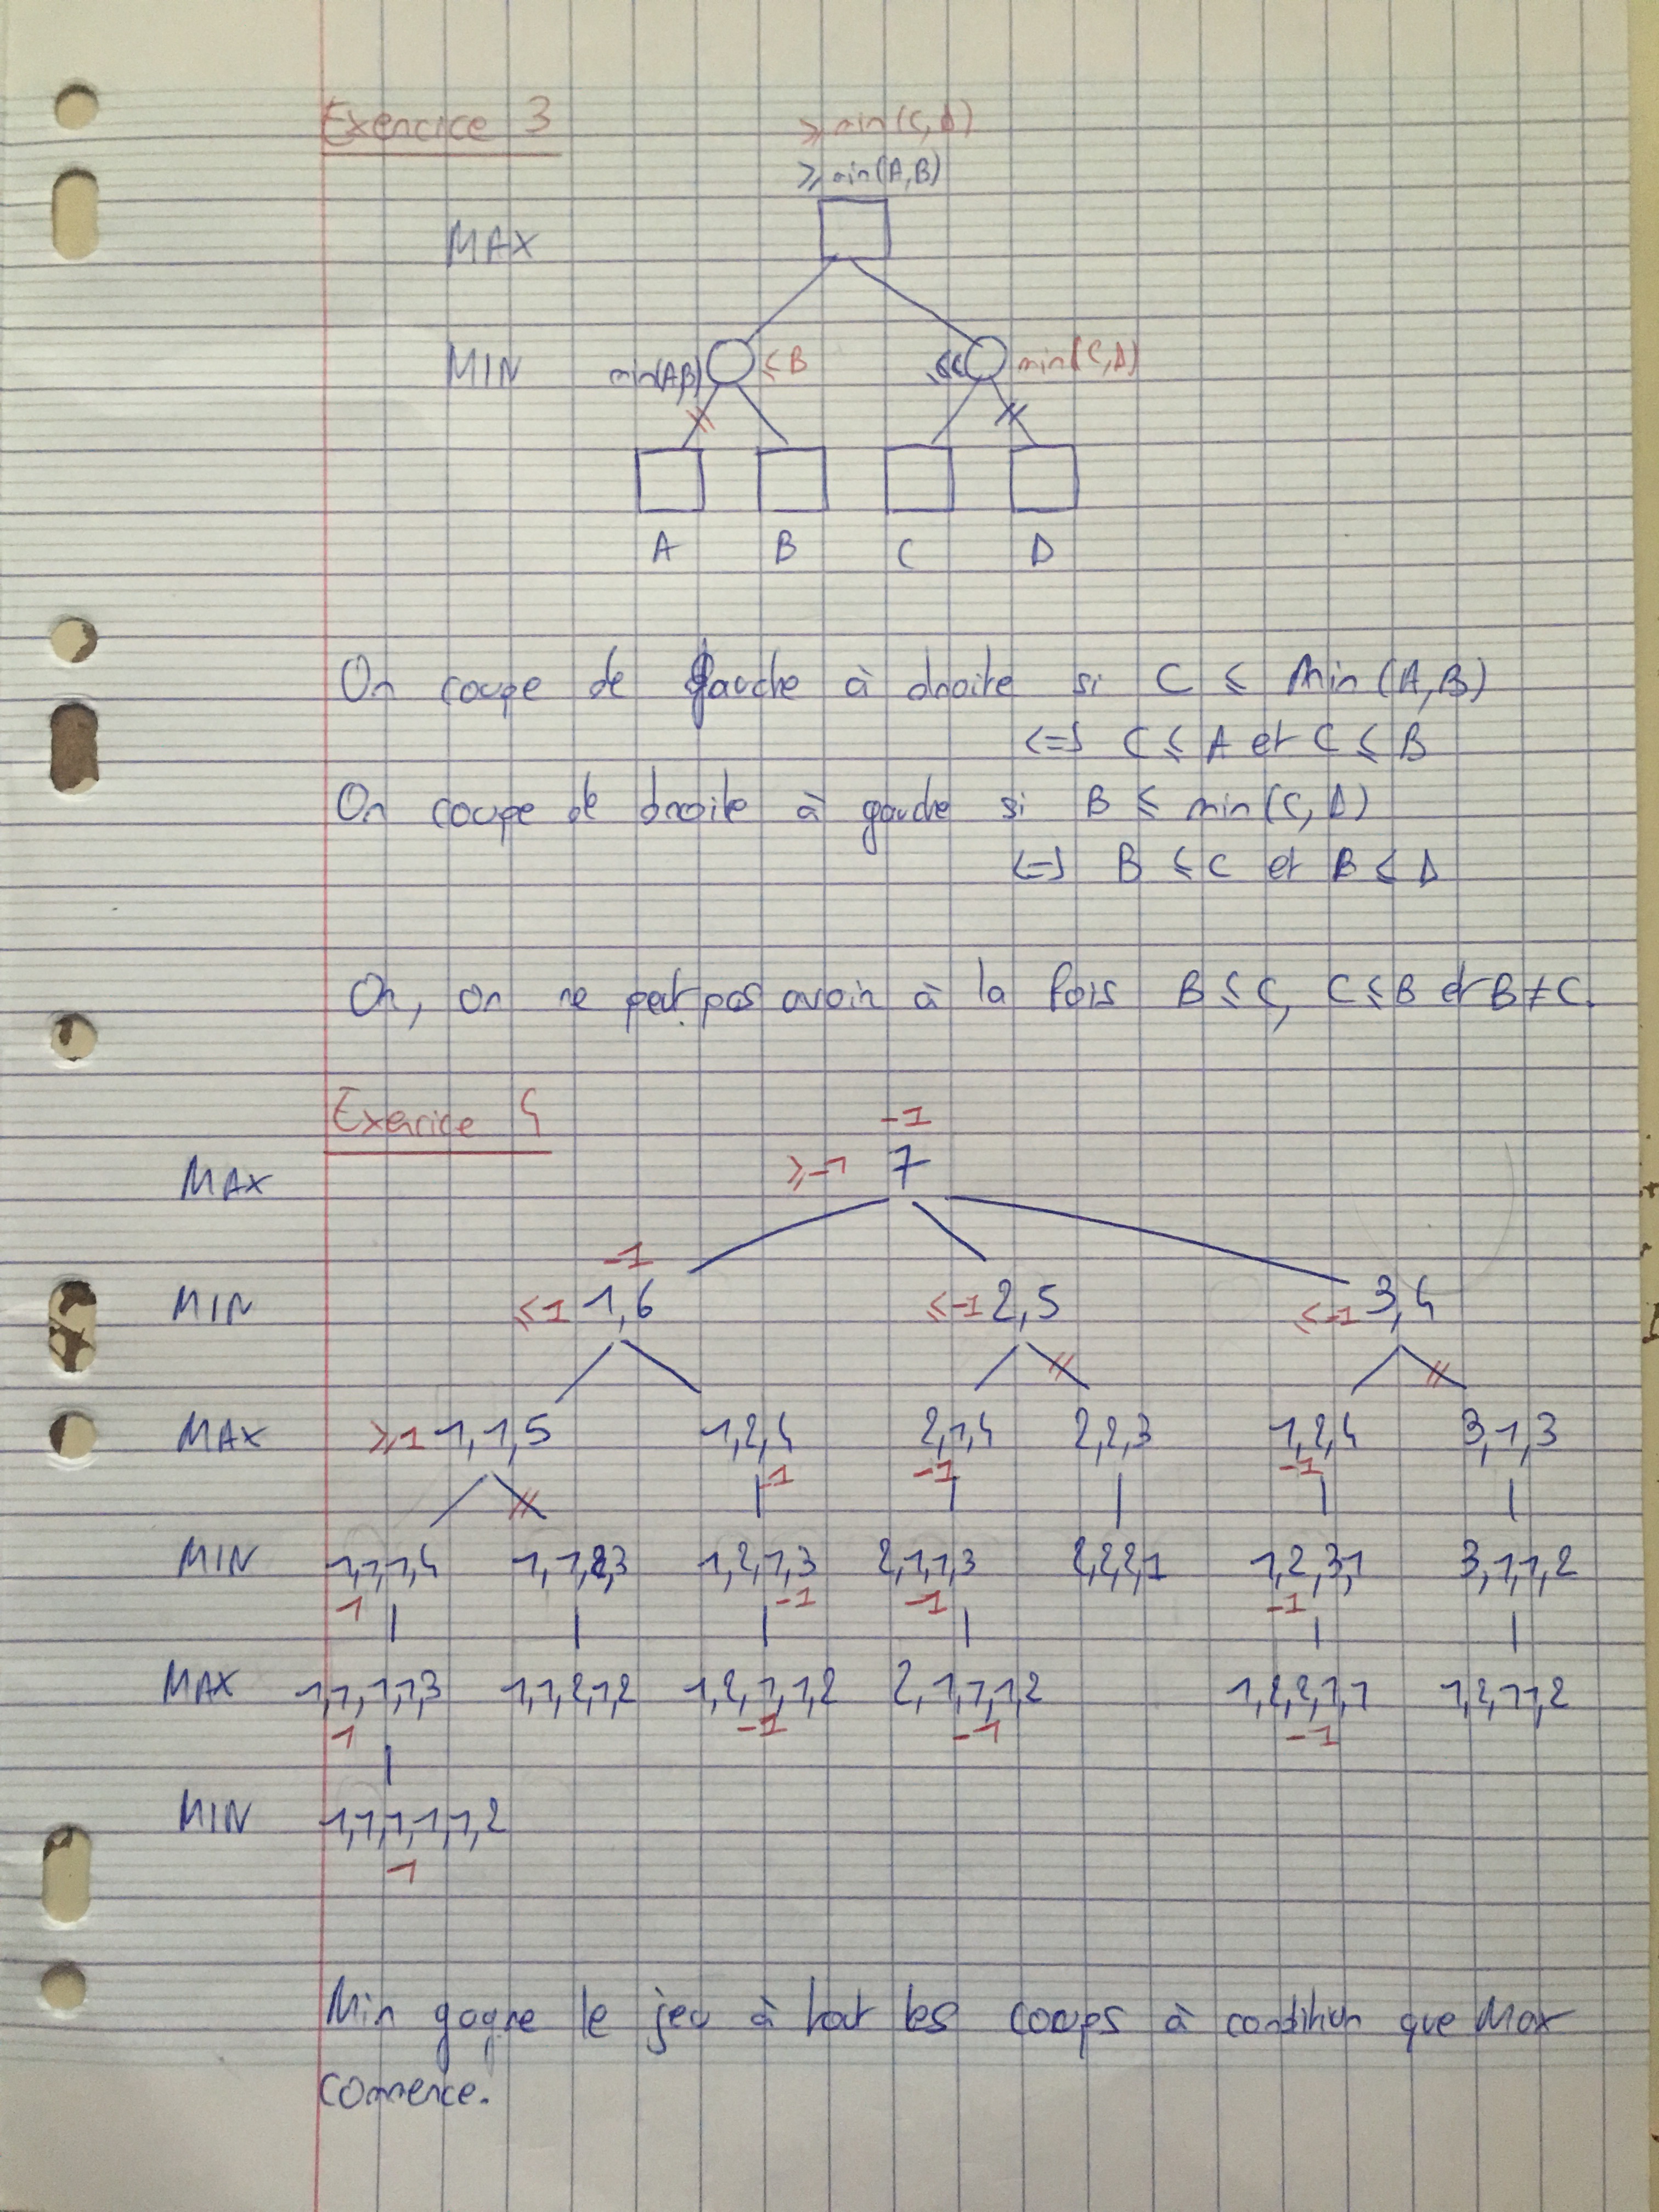 Exercice 3
≥ min(C,D)
≥ min(A,B)
MAX
MIN min(A,B) ≤B ≤C min(C,D)
A B C D
On coupe de gauche à droite si C ≤ Min (A,B)
<=> C ≤ A et C ≤ B
On coupe de droite à gauche si B ≤ min(C,D)
<=> B ≤ C et B ≤ D
Or, on ne peut pas avoir à la fois B ≤ C, C ≤ B et B ≠ C.
Exercice 4
-1
MAX ≥-1 7
-1
MIN ≤1 1,6 ≤-1 2,5 ≤-1 3,4
MAX ≥1 1,1,5 1,2,4 2,1,4 2,2,3 1,2,4 3,1,3
-1 -1 -1
MIN 1,1,1,4 1,1,2,3 1,2,1,3 2,1,1,3 2,2,2,1 1,2,3,1 3,1,1,2
1 -1 -1 -1
MAX 1,1,1,1,3 1,1,2,1,2 1,2,1,1,2 2,1,1,1,2 1,2,2,1,1 1,2,1,1,2
1 -1 -1 -1
MIN 1,1,1,1,1,2
1
Min gagne le jeu à tout les coups à condition que Max
commence.